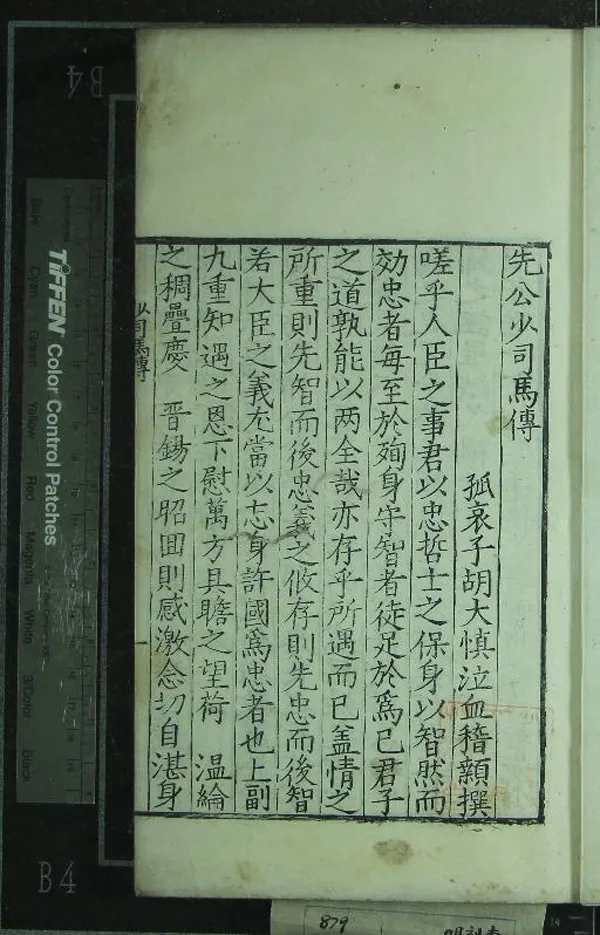 先公少司馬傳
孤哀子胡大慎泣血稽顙撰
嗟乎人臣之事君以忠哲士之保身以智然而
効忠者每至於殉身守智者徒足於爲已君子
之道孰能以两全哉亦存乎所遇而已盖情之
所重則先智而後忠義之攸存則先忠而後智
若大臣之義尤當以志身許國爲忠者也上副
九重知遇之恩下慰萬方具瞻之望荷 温綸
之稠疊慶 晋錫之昭回則感激念切自湛身
少司馬傳
一
TIFFEN Color Control Patches
Blue Cyan Green Yellow Red Magenta White 3/Color Black
B4
B4
879